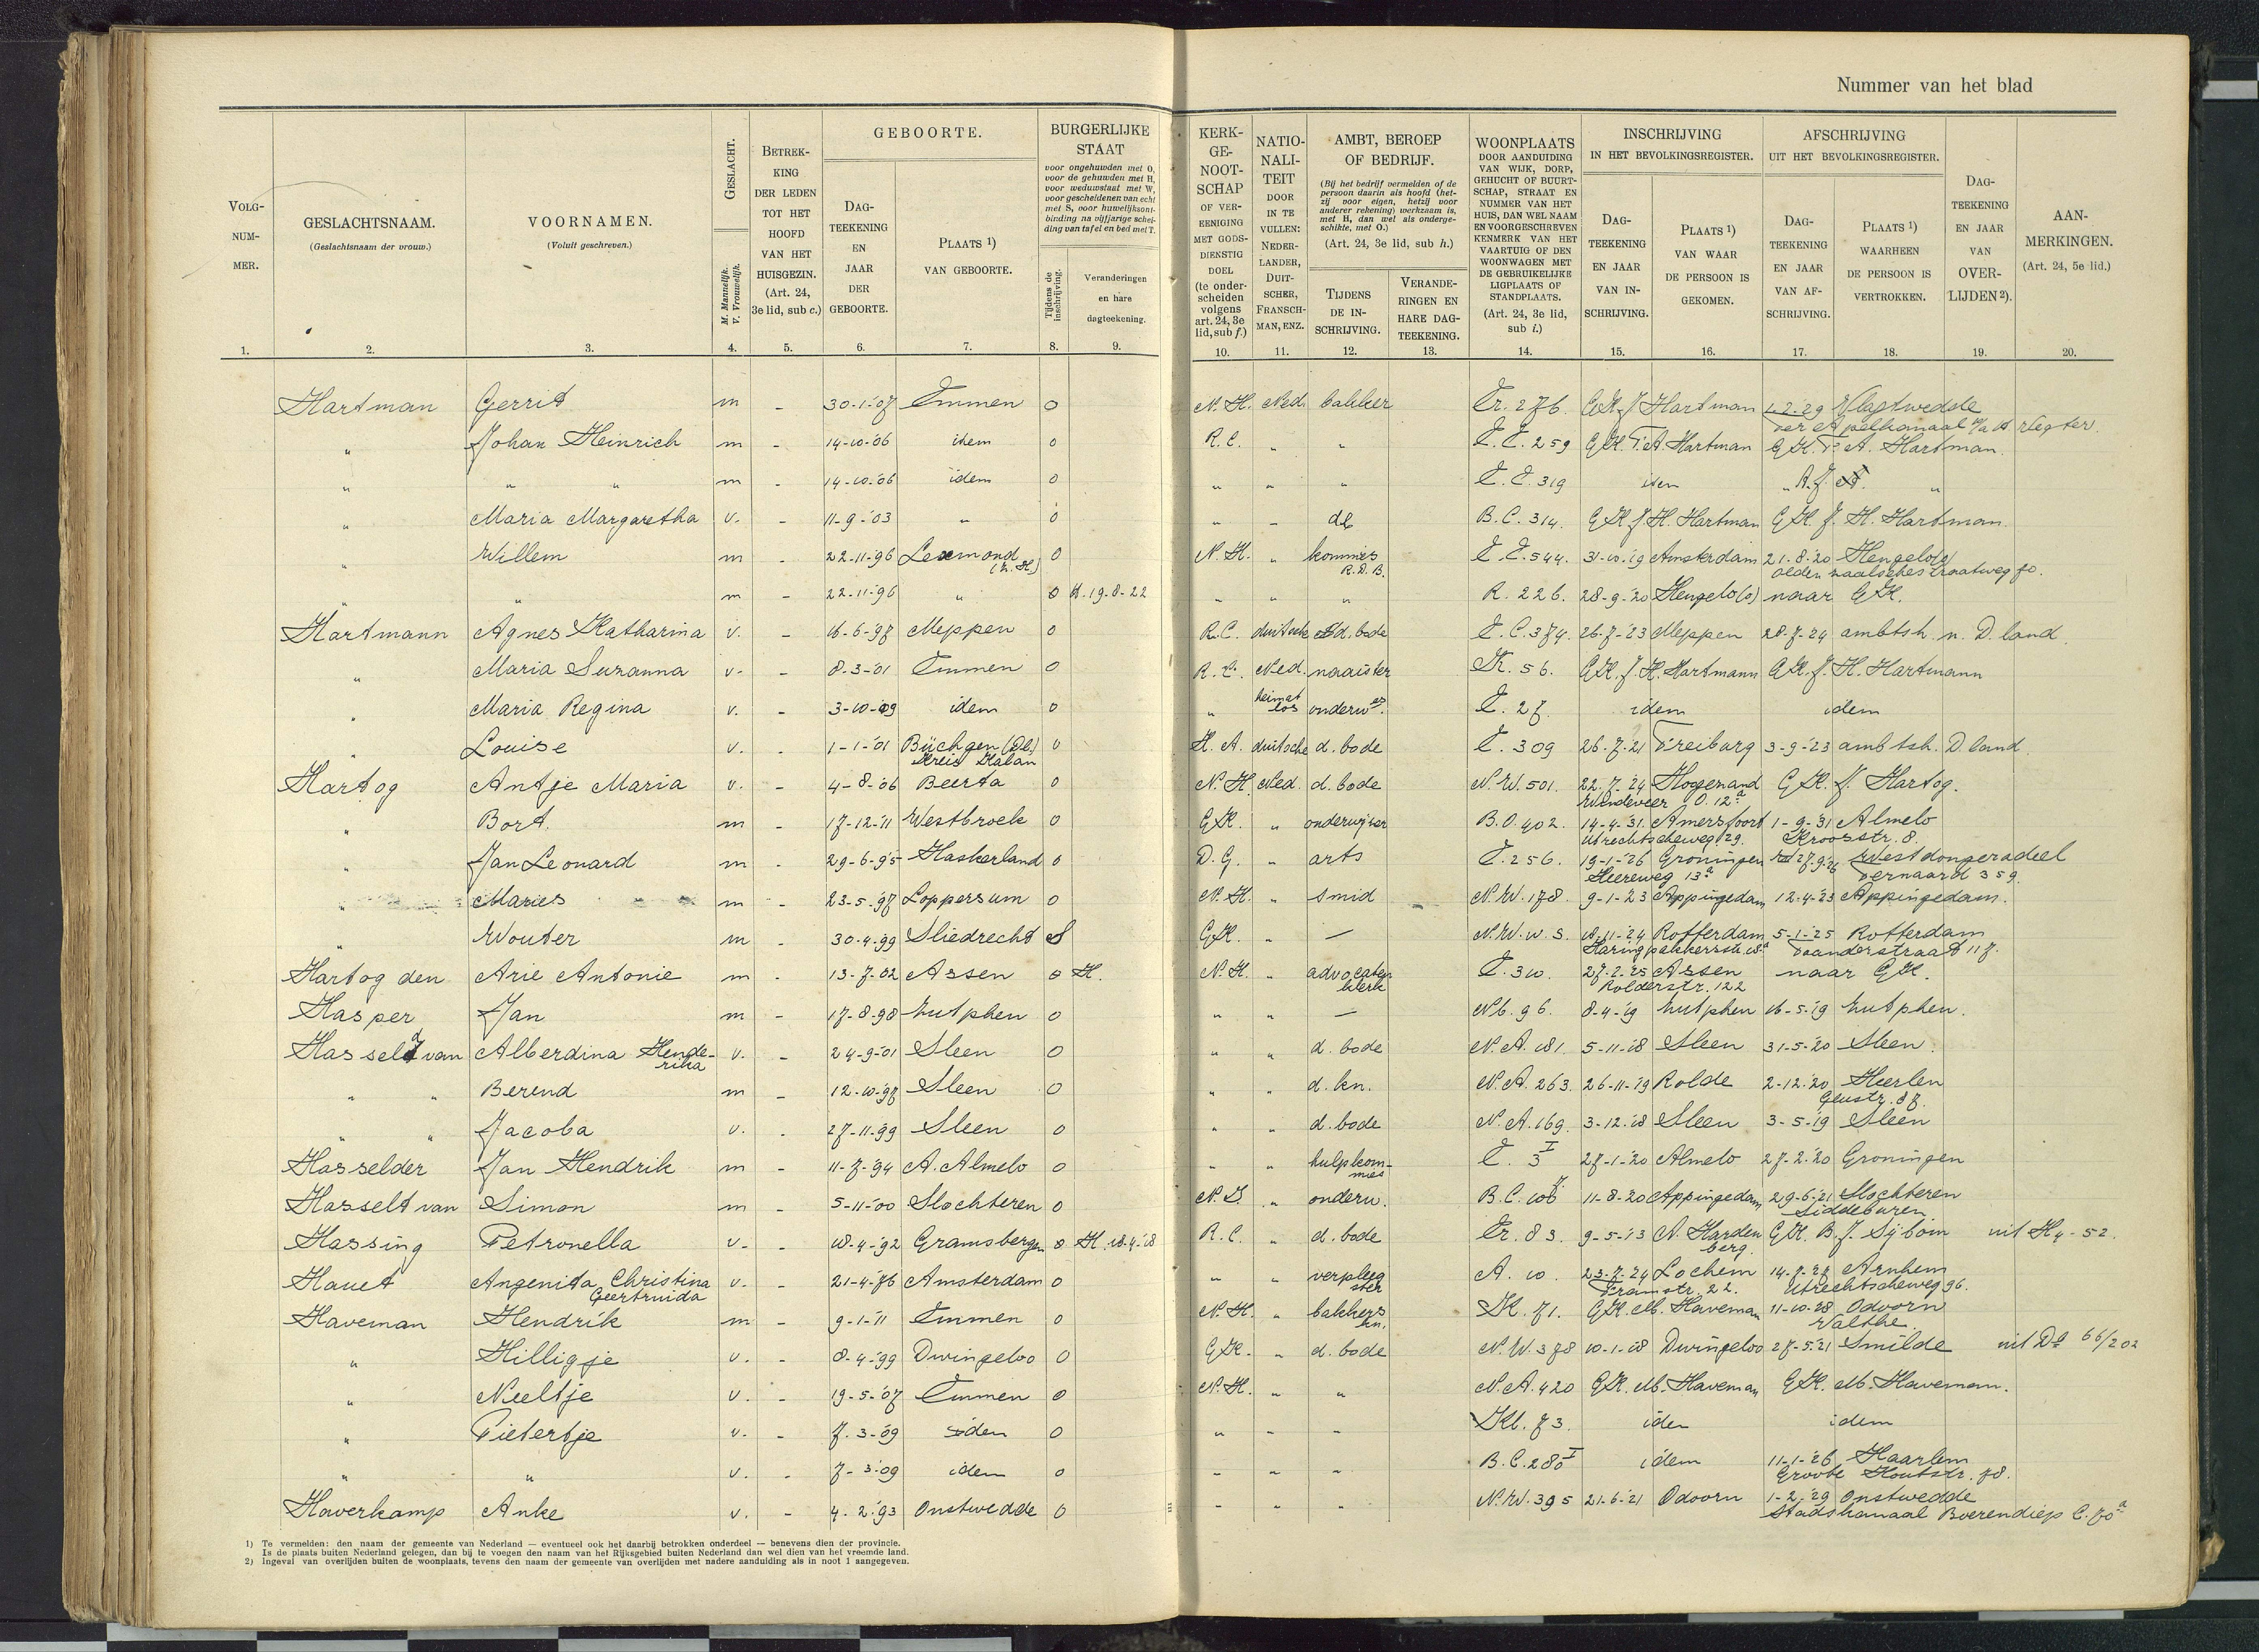 Nummer van het blad
VOLG-NUM-MER. GESLACHTSNAAM. (Geslachtsnaam der vrouw.) VOORNAMEN. (Voluit geschreven.) GESLACHT. M. Mannelijk. V. Vrouwelijk. BETREK-KING DER LEDEN TOT HET HOOFD VAN HET HUISGEZIN. (Art. 24, 3e lid, sub c.) GEBOORTE. DAG-TEEKENING EN JAAR DER GEBOORTE. PLAATS 1) VAN GEBOORTE. BURGERLIJKE STAAT voor ongehuwden met O, voor de gehuwden met H, voor weduwstaat met W, voor gescheidenen van echt met S, voor huwelijksontbinding na vijfjarige scheiding van tafel en bed met T. Tijdens de inschrijving. Veranderingen en hare dagteekening.
KERK-GE-NOOT-SCHAP OF VER-EENIGING MET GODS-DIENSTIG DOEL (te onder-scheiden volgens art. 24, 3e lid, sub f.) NATIO-NALI-TEIT DOOR IN TE VULLEN: NEDER-LANDER, DUIT-SCHER, FRANSCH-MAN, ENZ. AMBT, BEROEP OF BEDRIJF. (Bij het bedrijf vermelden of de persoon daarin als hoofd (hetzij voor eigen, hetzij voor anderer rekening) werkzaam is, met H, dan wel als ondergeschikte, met O.) (Art. 24, 3e lid, sub h.) TIJDENS DE IN-SCHRIJVING. VERANDE-RINGEN EN HARE DAG-TEEKENING. WOONPLAATS DOOR AANDUIDING VAN WIJK, DORP, GEHUCHT OF BUURT-SCHAP, STRAAT EN NUMMER VAN HET HUIS, DAN WEL NAAM EN VOORGESCHREVEN KENMERK VAN HET VAARTUIG OF DEN WOONWAGEN MET DE GEBRUIKELIJKE LIGPLAATS OF STANDPLAATS. (Art. 24, 3e lid, sub i.) INSCHRIJVING IN HET BEVOLKINGSREGISTER. DAG-TEEKENING EN JAAR VAN IN-SCHRIJVING. PLAATS 1) VAN WAAR DE PERSOON IS GEKOMEN. AFSCHRIJVING UIT HET BEVOLKINGSREGISTER. DAG-TEEKENING EN JAAR VAN AF-SCHRIJVING. PLAATS 1) WAARHEEN DE PERSOON IS VERTROKKEN. DAG-TEEKENING EN JAAR VAN OVER-LIJDEN 2). AAN-MERKINGEN. (Art. 24, 5e lid.)
1. 2. 3. 4. 5. 6. 7. 8. 9. 10. 11. 12. 13. 14. 15. 16. 17. 18. 19. 20.
Hartman Gerrit m - 30-1-'07 Emmen O N.H. Ned. bakker Er. 276 G.K. J. Hartman 1.2.'29 Vlagtwedde
Ter Apelkanaal
" Johan Heinrich m - 14-10-'06 idem O R.C. " " E.E. 259 G.K. T.A. Hartman G.K. T.A. Hartman.
" " " m - 14-10-'06 idem O " " " E.E. 319 idem "
" Maria Margaretha v. - 11-9-'03 " O " - db B.C. 314. G.K. J.H. Hartman G.K. J.H. Hartman
" Willem m - 22-11-'96 Lexmond (Z.H.) O N.H. " kommies R.D.B. E.E. 544. 31-10-'19 Amsterdam 21-8-'20 Hengelo(o)
Oldenzaalschestraatweg 70.
" " m - 22-11-'96 " O H. 19-8-22 " " " R. 226. 28-9-'20 Hengelo(o) naar G.K.
Hartmann Agnes Katharina v. - 16-6-'97 Meppen O R.C. duitsche d. bode E.C. 374. 26-7-'23 Meppen 28-7-24 ambtsh. n. D. land
" Maria Suzanna v. - 8-3-'01 Emmen O R.C. Ned. naaister K. 56. G.K. J.H. Hartmann G.K. J.H. Hartmann
" Maria Regina v. - 3-10-'09 idem O " heimatlos onderw.es E. 27. idem idem
" Louise v. - 1-1-'01 Büchgen (Dl.) Kreis Kalan O H.A. duitsche d. bode E. 309 26-7-21 Freiburg 3-9-'23 ambtsh. D. land
Hartog Antje Maria v. - 4-8-'06 Beerta O N.H. Ned. d. bode N.W. 501. 22-7-'24 Hogezand G.K. J. Hartog.
Windeweer O. 12a
" Bort. m - 17-12-'11 Westbroek O G.K. " onderwijzer B.O. 402. 14-4-'31 Amersfoort 1-9-'31 Almelo
Utrechtscheweg 129. Kroosstr. 8.
" Jan Leonard m - 29-6-'95 Haskerland O D.G. " arts E. 256. 19-1-'26 Groningen 27.9.'26 Westdongeradeel
Heereweg 13a Ternaard 359.
" Maries m - 23-5-'97 Loppersum O N.H. " smid N.W. 178. 9-1-'23 Appingedam 12-4-'23 Appingedam.
" Wouter m - 30-4-'99 Sliedrecht S G.K. " - N.W.W.S. 18-11-'24 Rotterdam 5-1-'25 Rotterdam
Haringpakkersstr. Vaanderstraat 117.
Hartog den Arie Antonie m - 13-7-02 Assen O H. N.H. " advocatenklerk E. 310. 27-2-'25 Assen naar G.K.
Rolderstr. 122
Hasper Jan m - 17-8-98 Zutphen O " " - Nb. 96. 8-4-'19 Zutphen 16-5-'19 Zutphen.
Hasselt van Alberdina Henderika v. - 24-9-'01 Sleen O " " d. bode N.A. 181. 5-11-'18 Sleen 31-5-'20 Sleen.
" " Berend m - 12-10-'97 Sleen O " " d. kn. N.A. 263. 26-11-'19 Rolde 2-12-'20 Heerlen
Geustr. 87.
" " Jacoba v. - 27-11-'99 Sleen O " " d. bode N.A. 169. 3-12-'18 Sleen 3-5-'19 Sleen
Hasselder Jan Hendrik m - 11-7-'94 A. Almelo O " " hulpkommies E. 3 I 27-1-'20 Almelo 27-2-'20 Groningen
Hasselt van Simon m - 5-11-'00 Slochteren O N.I. " onderw. B.C. 11-8-20 Appingedam 29-6-'21 Slochteren
Siddeburen
Hassing Petronella v. - 18-4-'92 Gramsbergen O H. 18-4-'18 R.C. " d. bode Er. 83. 9-5-'13 A. Hardenberg. G.K. B.J. Sijbom uit H4-52.
Hauet Angenita Christina Geertruida v. - 21-4-'76 Amsterdam O " " verpleegster A. 10. 23-7-'24 Lochem 14-7-'27 Arnhem
Tramstr. 22. Utrechtscheweg 96.
Haveman Hendrik m - 9-1-'11 Emmen O N.H. " bakkerskn. K. 71. G.K. M. Haveman 11-10-'28 Odoorn
Valthe.
" Hilligje v. - 8-4-'99 Dwingeloo O G.K. " d. bode N.W. 378 10-1-'18 Dwingeloo 27-5-'21 Smilde uit Db 66/202
" Neeltje v. - 19-5-'07 Emmen O N.H. " " N.A. 420 G.K. M. Haveman G.K. M. Haveman.
" Pietertje v. - 7-3-'09 idem O " - - Kl. 73. idem idem
" " v. - 7-3-'09 idem O - - - B.C. 280 I idem 11-1-'26 Haarlem
Groote Houtstr. 78.
Haverkamp Anke v. - 4-2-'93 Onstwedde O - " " N.W. 395 21-6-'21 Odoorn 1-2-'29 Onstwedde
Stadskanaal Boerendiep C. 70a
1) Te vermelden: den naam der gemeente van Nederland — eventueel ook het daarbij betrokken onderdeel — benevens dien der provincie.
Is de plaats buiten Nederland gelegen, dan bij te voegen den naam van het Rijksgebied buiten Nederland dan wel dien van het vreemde land.
2) Ingeval van overlijden buiten de woonplaats, tevens den naam der gemeente van overlijden met nadere aanduiding als in noot 1 aangegeven.